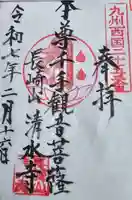 九州西国二十五番
奉拝
本尊千手観音菩薩
長崎山清水寺
令和七年二月十六日